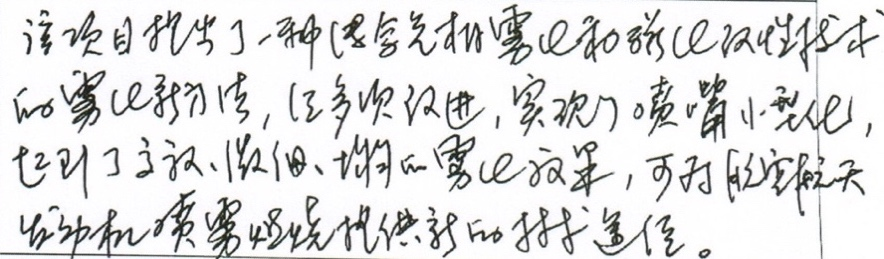 该项目提出了一种结合先相雾化和磁化改性技术
的雾化新方法，经多次改进，实现了喷嘴小型化，
起到了高效、微细、均匀的雾化效果，可为航空航天
发动机喷雾燃烧提供新的技术途径。